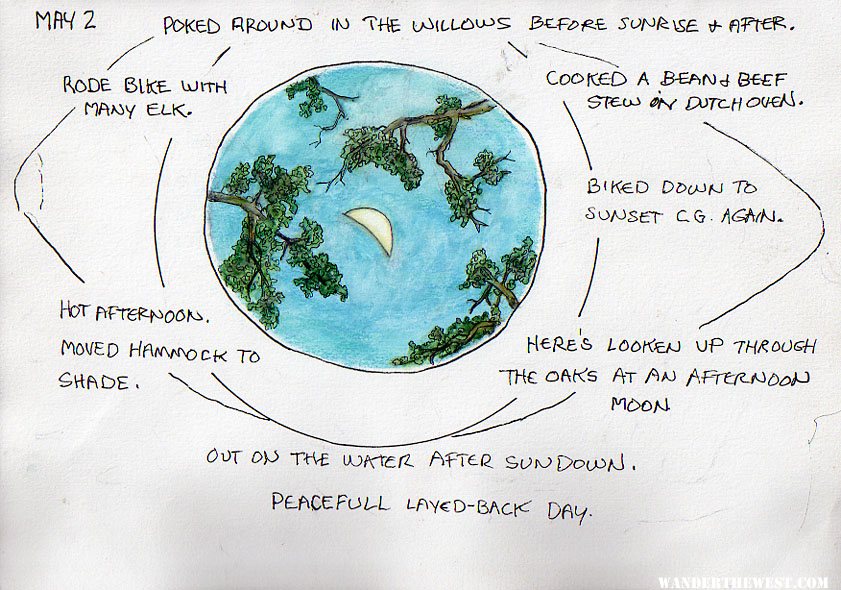 MAY 2
POKED AROUND IN THE WILLOWS BEFORE SUNRISE & AFTER.
RODE BIKE WITH
MANY ELK.
COOKED A BEAN & BEEF
STEW IN DUTCH OVEN.
BIKED DOWN TO
SUNSET C.G. AGAIN.
HOT AFTERNOON.
MOVED HAMMOCK TO
SHADE.
HERE'S LOOKEN UP THROUGH
THE OAKS AT AN AFTERNOON
MOON
OUT ON THE WATER AFTER SUNDOWN.
PEACEFULL LAYED-BACK DAY.
WANDERTHEWEST.COM